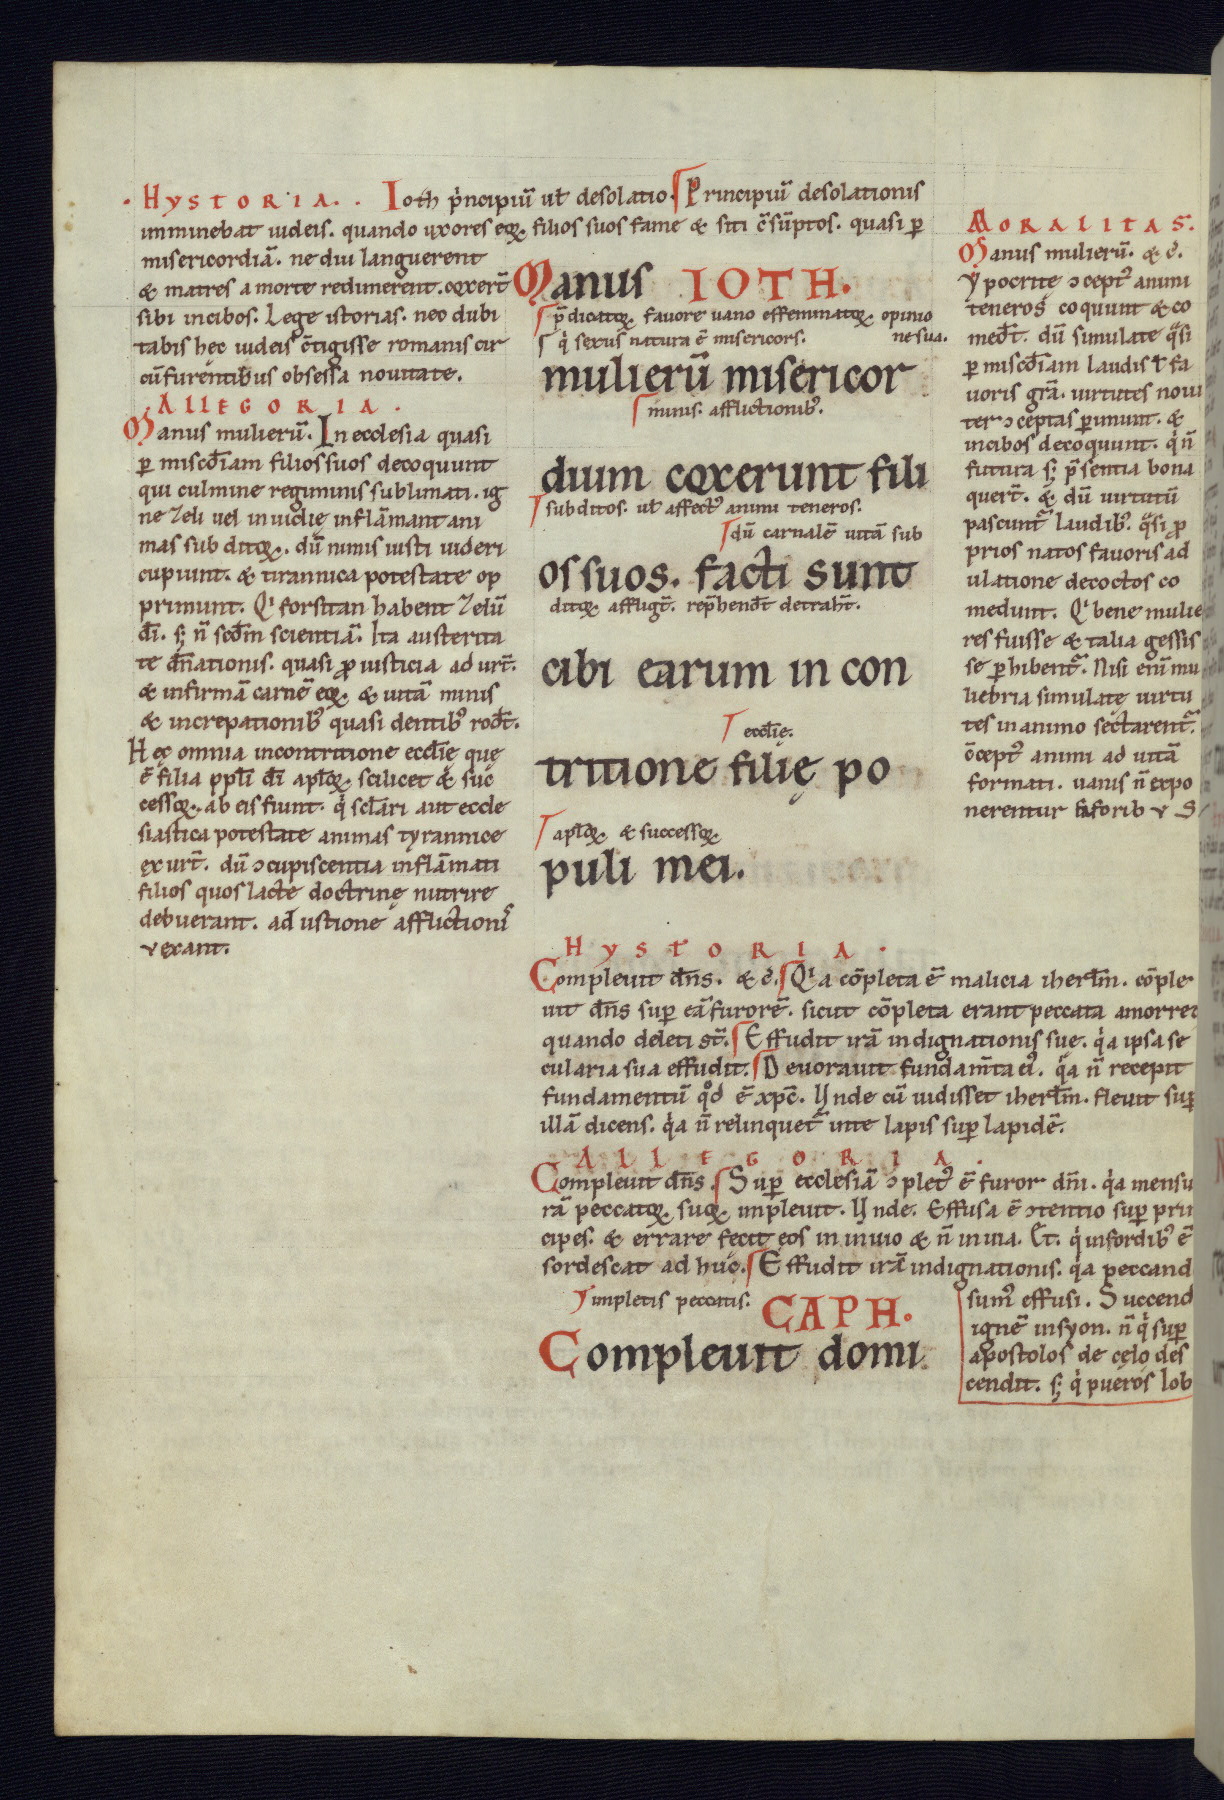 HYSTORIA. Ioth p̾ncipiū ul̾ desolatio. Principiū desolationis
imminebat iudeis. quando uxores eoꝝ filios suos fame & siti c̄sūptos. quasi ꝑ
misericordiā. ne diu languerent
& matres a morte redimerent. coxer̄t
sibi in cibos. Lege istorias. nec dubi
tabis hec iudeis c̄tigisse romanis cir
cū furentibus obsessa nouitate.
ALLEGORIA.
Manus mulierū. In ecclesia quasi
ꝑ misc̄diam filios suos decoquunt
qui culmine regiminis sublimati. ig
ne zeli uel inuidię inflāmant ani
mas subditoꝝ. dū nimis iusti uideri
cupiunt. & tirannica potestate op
primunt. Qi forsitan habent zelū
dī. sꝫ n̄ scd̄m scientiā. Ita austerita
te dn̄ationis. quasi ꝓ iusticia adurt̄.
& infirmā carnē eoꝝ & uitā minis
& increpationibꝰ quasi dentibꝰ rodt̄.
Hęc omnia in contritione eccl̄ię quę
ē filia pp̄li dī apl̄oꝝ scilicet & suc
cessoꝝ. ab eis fiunt. qi scl̄ari aut eccle
siastica potestate animas tyrannice
exurt̄. dū ɔcupiscentia inflāmati
filios quos lacte doctrinę nutrire
debuerant. ad ustione afflictioniˢ
vexant.
Manus IOTH.
p̄dicatoꝝ fauore uano effeminatoꝝ opinio
ne sua.
qi sexus natura ē misericors.
mulierū misericor
minis. afflictionibꝰ.
dium coxerunt fili
subditos. ul̾ affectꝰ animi teneros.
dū carnalē uitā sub
os suos. facti sunt
ditoꝝ affligt̄. rep̄hendt̄ detraht̄.
cibi earum in con
eccl̄ię.
tritione filię po
apl̄oꝝ & successoꝝ
puli mei.
MORALITAS.
Manus mulierū. & c̄.
Ypocrite ɔceptꝰ animi
teneros coquunt & co
medt̄. dū simulate qᵃsi
ꝑ misc̄diam laudis ul̾ fa
uoris gr̄a. uirtutes noui
ter ɔceptas ꝑimunt. &
in cibos decoquunt. qi n̄
futura sꝫ p̄sentia bona
quert̄. & dū uirtutū
pascunt̄ laudibꝰ. qᵃsi ꝓ
prios natos fauoris ad
ulatione decoctos co
medunt. Qi bene mulie
res fuisse & talia gessis
se ꝑhibent̄. Nisi enī mu
liebria simulatę uirtu
tes in animo sectarent̄.
c̄ceptꝰ animi ad uitā
formati. uanis n̄ expo
nerentur
HYSTORIA.
Compleuit dn̄s. & c̄. Qia cōpleta ē malicia iherl̄m. cōple
uit dn̄s suꝑ eā furorē. sicut cōpleta erant peccata amorreo
quando deleti st̄. Effudit irā indignationis suę. qia ipsa se
cularia sua effudit. Deuorauit fundam̄ta eiꝰ. qia n̄ recepit
fundamentū qd̄ ē xp̄c. Unde cū uidisset iherl̄m. fleuit suꝑ
illā dicens. qia n̄ relinquet̄ in te lapis suꝑ lapidē.
ALLEGORIA.
Compleuit dn̄s. Suꝑ ecclesiā ɔpletꝰ ē furor dn̄i. qia mensu
rā peccatoꝝ suoꝝ impleuit. Unde. Effusa ē ɔtentio suꝑ prin
cipes. & errare fecit eos in inuio & n̄ in uia. Et. qi in sordibꝰ ē
sordescat adhuc. Effudit irā indignationis. qia peccand
sumꝰ effusi. Succend
ignē in syon. n̄ qi suꝑ
apostolos de celo des
cendit. sꝫ qi pueros Iob
impletis peccatis. CAPH.
Compleuit domi